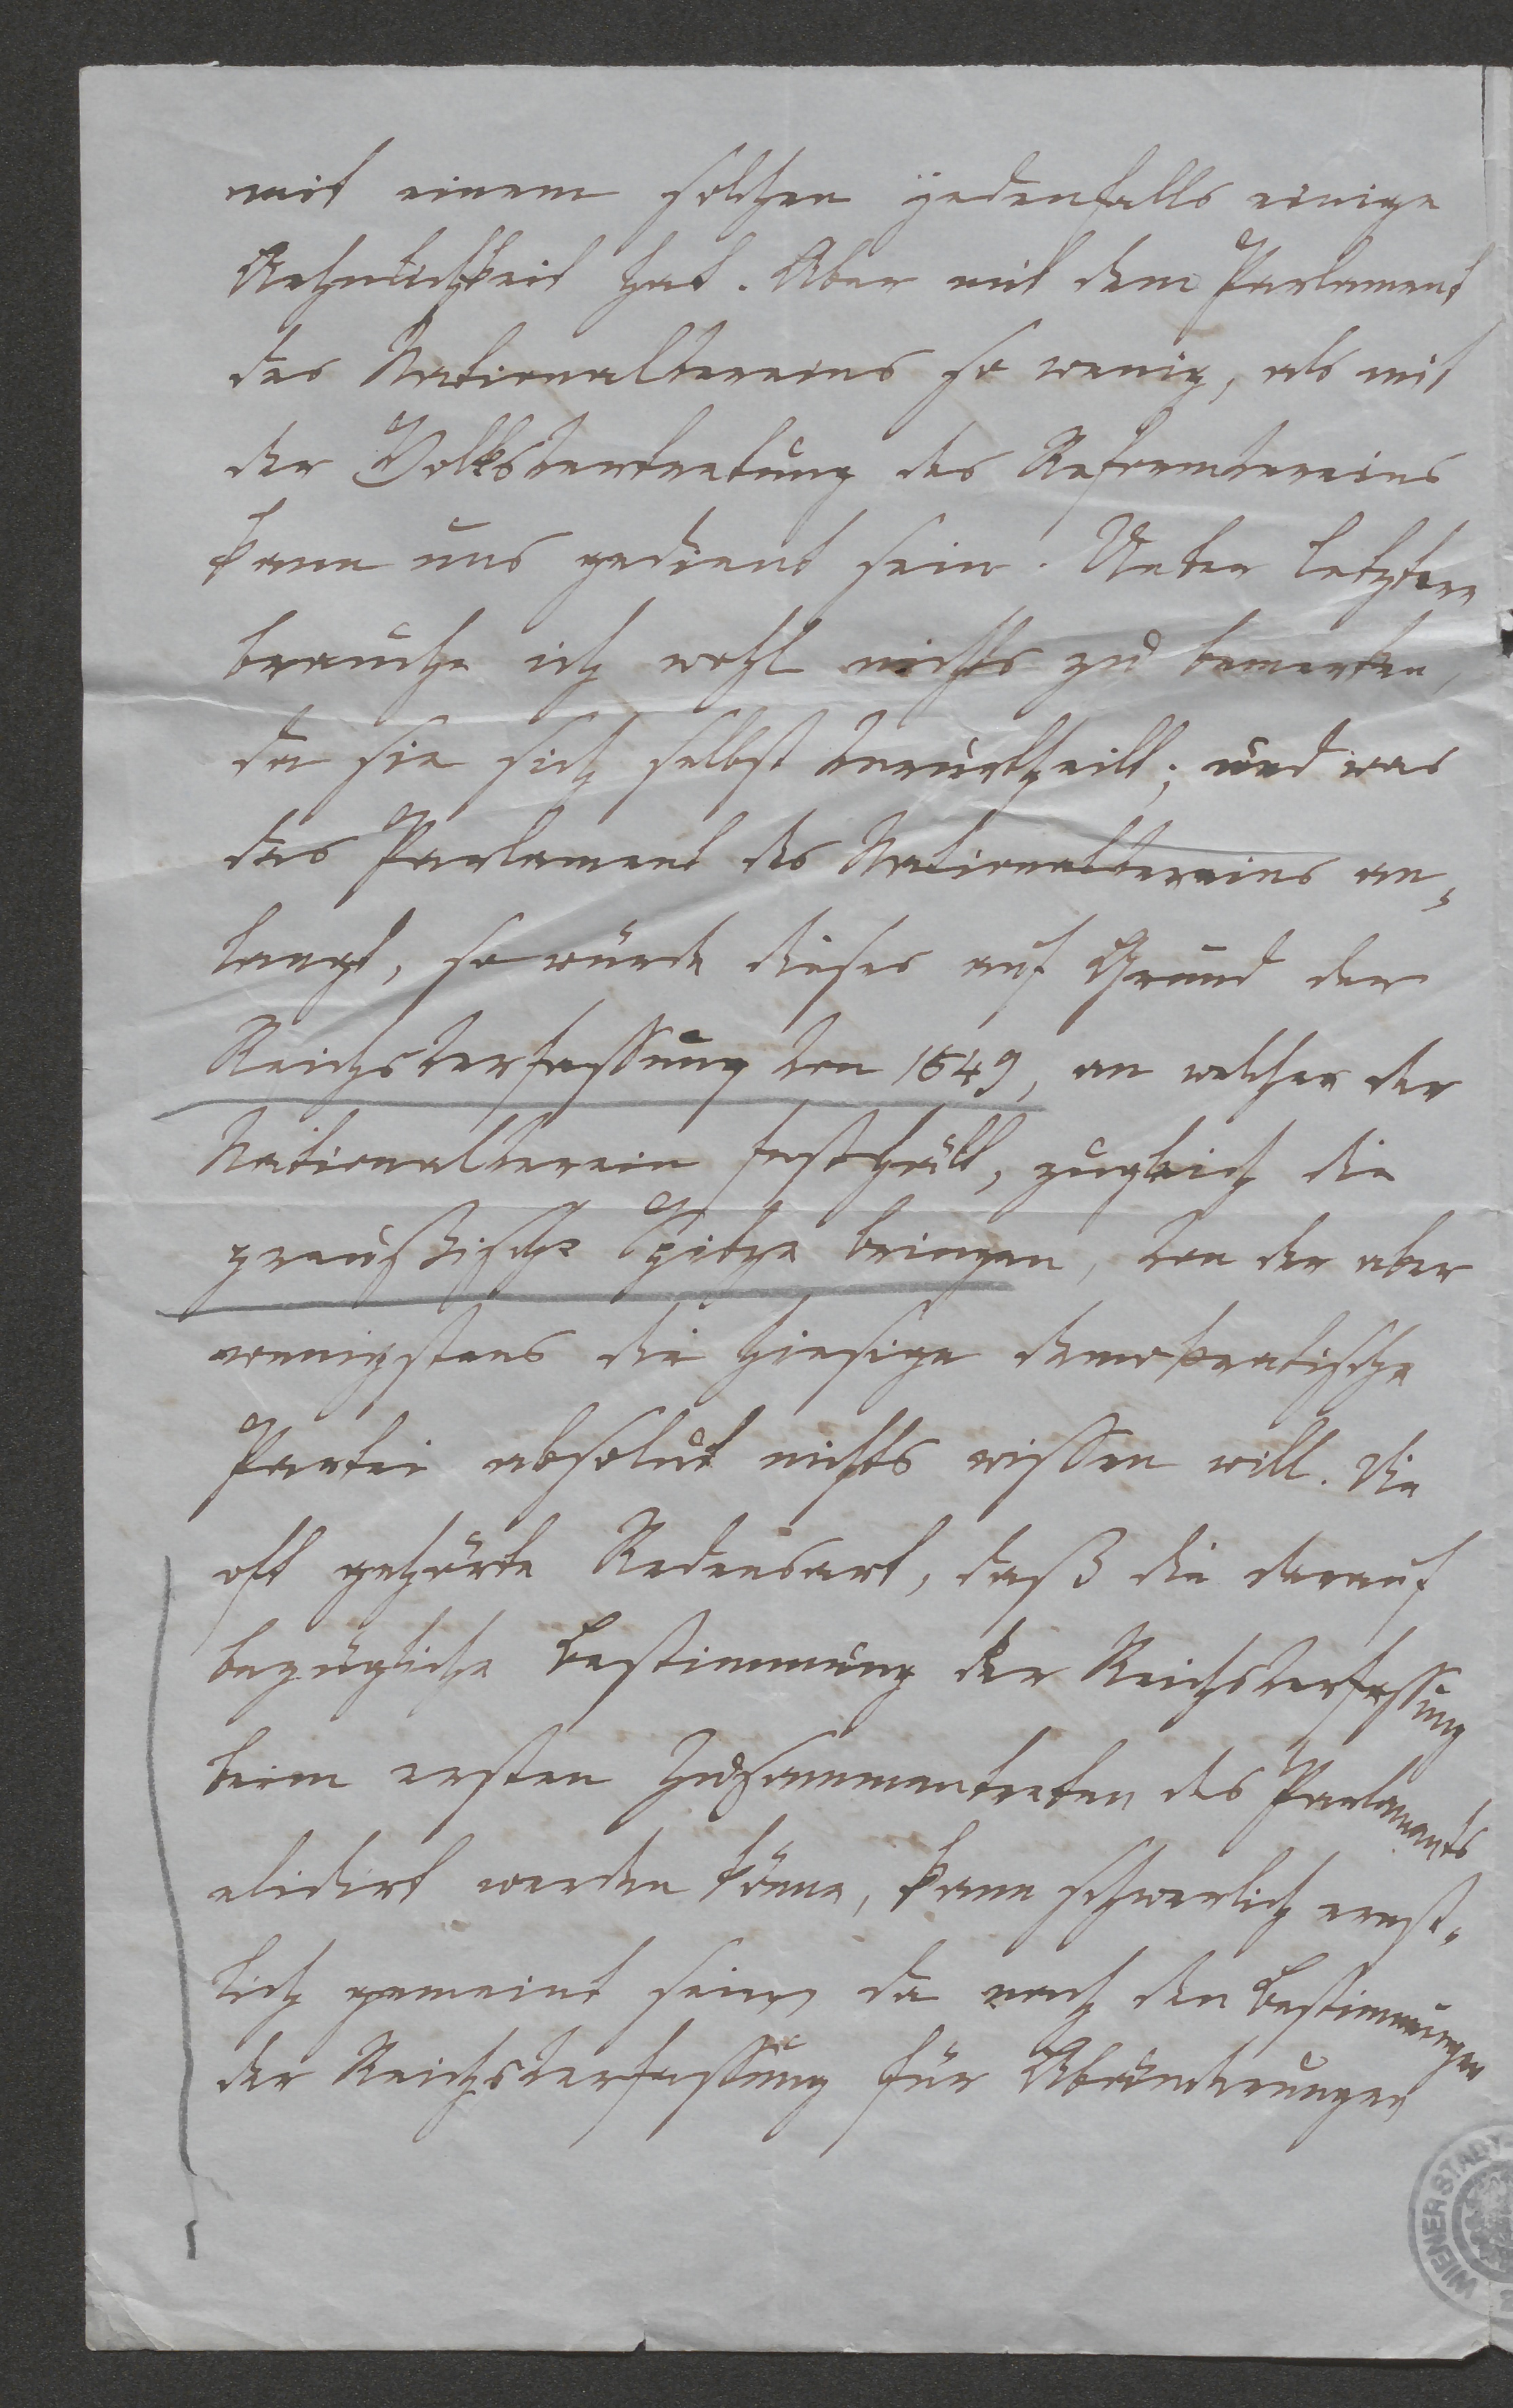 mit einem solchen jedenfalls einige
Aehnlichkeit hat. Aber mit dem Parlament
des Nationalvereins so wenig, als mit
der Volksvertretung des Reformvereins
kann uns gedient sein. Ueber letztere
brauche ich wohl nichts zu bemerken,
da sie sich selbst verurtheilt; und was
das Parlament des Nationalvereins an-
langt, so würde dieses auf Grund der
Reichsverfassung von 1849, an welcher der
Nationalverein festhält, zugleich die
preußische Spitze bringen, von der aber
wenigstens die hiesige demokratische
Partei absolut nichts wissen will. Die
oft gehörte Redensart, daß die darauf
bezügliche Bestimmung der Reichsverfassung
beim ersten Zusammentreten des Parlaments
elidirt werden könne, kann schwerlich ernst-
lich gemeint sein, da nach den Bestimmungen
der Reichsverfassung für Abänderungen
WIENER STADT